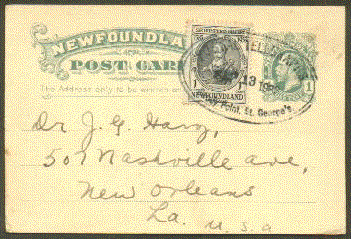 NEWFOUNDLAND
POST CARD
The Address only to be written
NEWFOUNDLAND
1
1
1
13
Point, St. George's
Dr. J. G. Harz,
501 Nashville ave,
New Orleans
La. U.S.A